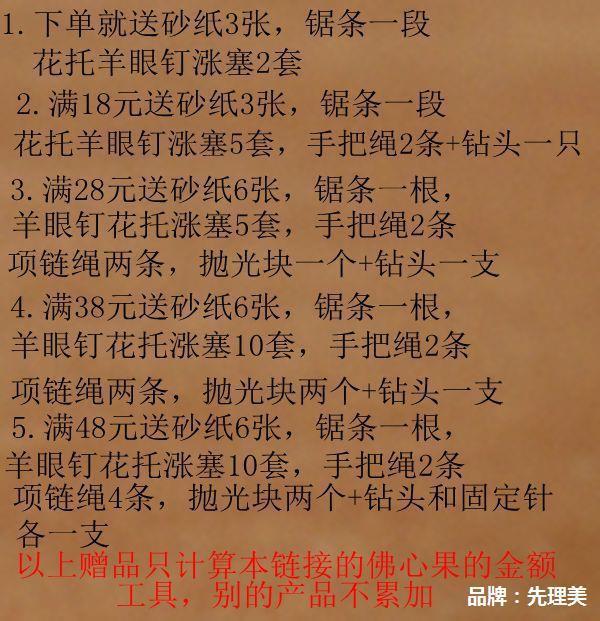 1.下单就送砂纸3张，锯条一段
花托羊眼钉涨塞2套
2.满18元送砂纸3张，锯条一段
花托羊眼钉涨塞5套，手把绳2条+钻头一只
3.满28元送砂纸6张，锯条一根，
羊眼钉花托涨塞5套，手把绳2条
项链绳两条，抛光块一个+钻头一支
4.满38元送砂纸6张，锯条一根，
羊眼钉花托涨塞10套，手把绳2条
项链绳两条，抛光块两个+钻头一支
5.满48元送砂纸6张，锯条一根，
羊眼钉花托涨塞10套，手把绳2条
项链绳4条，抛光块两个+钻头和固定针
各一支
以上赠品只计算本链接的佛心果的金额
工具，别的产品不累加
品牌：先理美